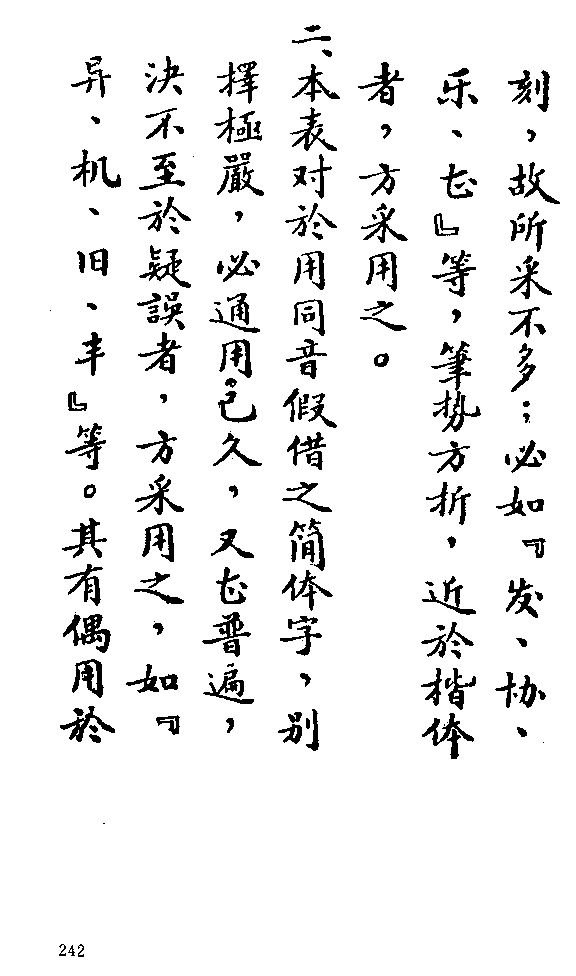 刻，故所采不多；必如『发、协、
乐、𠀋』等，筆势方折，近於楷体
者，方采用之。
二、本表对於用同音假借之简体字，别
擇極嚴，必通用已久，又𠀋普遍，
決不至於疑誤者，方采用之，如『
异、机、旧、丰』等。其有偶用於
242